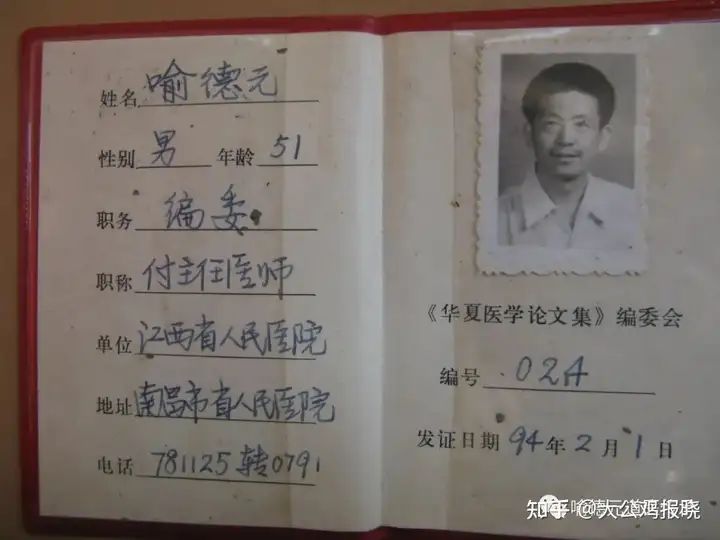 姓名 喻德元
性别 男 年龄 51
职务 编委
职称 付主任医师
单位 江西省人民医院
地址 南昌市省人民医院
电话 781125转0791
《华夏医学论文集》编委会
编号 02A
发证日期 94年2月1日
知乎 @大公鸡报晓